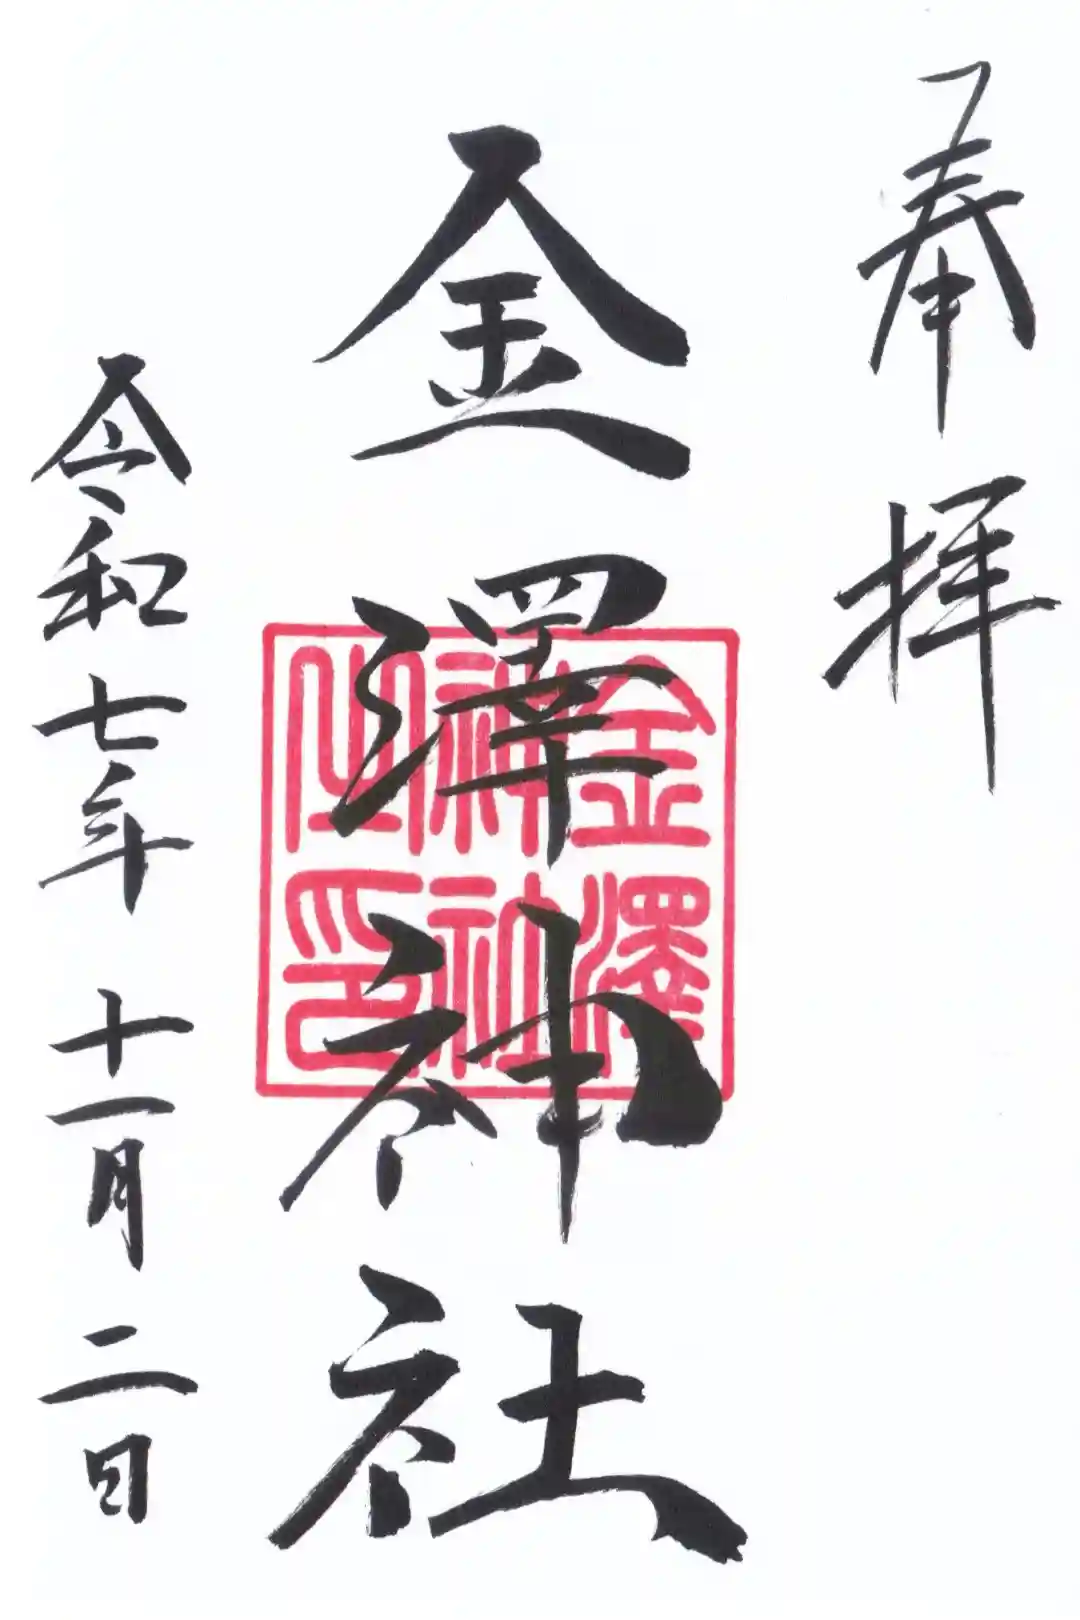 奉拝
金澤神社
金澤
神社
之印
令和七年 十一月 二日